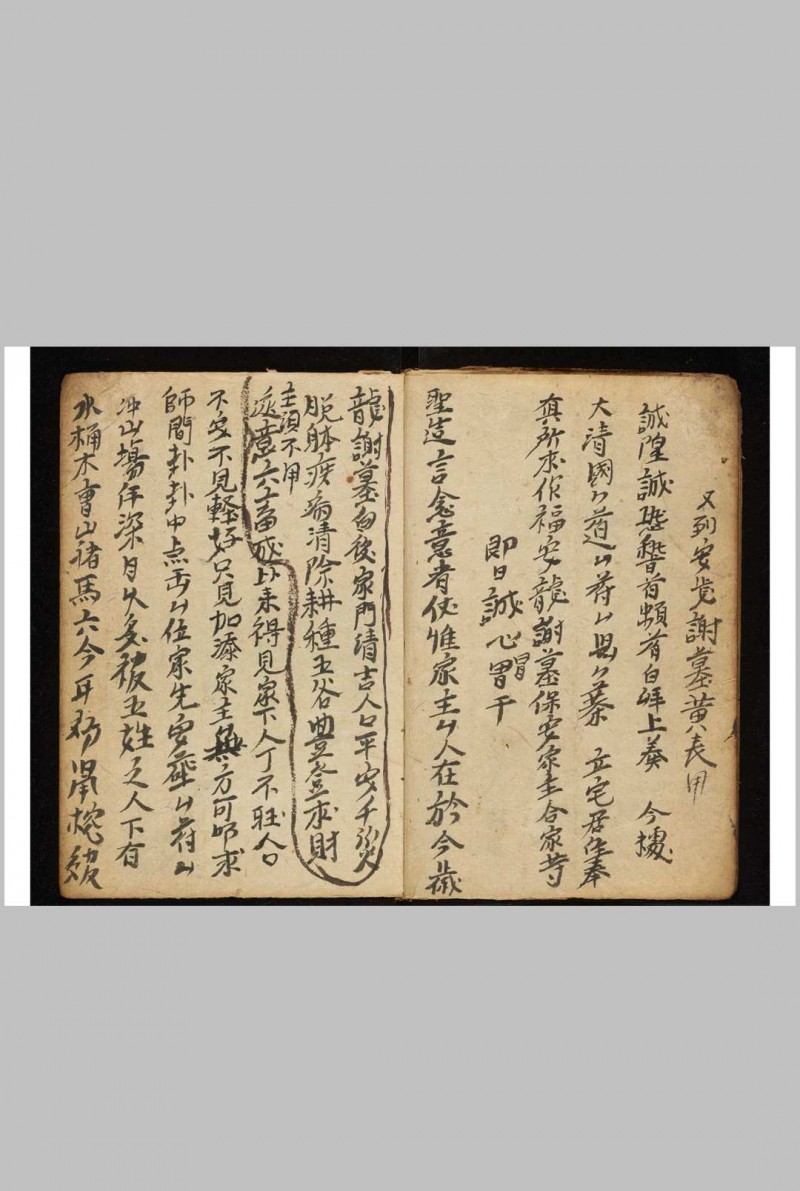 又列安党謝墓黄表用
誠隍誠恐稽首頓首百拜上奏 今據
大清國厶道厶府厶縣厶寨 立宅居住奉
真所求作福安龍謝墓保安家主合家等
即日誠心冒干
聖造言念意者伏惟家主厶人在於今歲
龍謝墓向後家門清吉人口平安千災
脱體疾病清除耕種五谷豊登求財
主須不用
遂意六畜成 以来得見家下人丁不旺人口
不安不見輕好只見加添家主無方可叩求
師間卦卦中点出厶位家先安葬厶府厶
冲山塲年深月久多被五姓之人下有
水桶木曹山猪馬六今牙